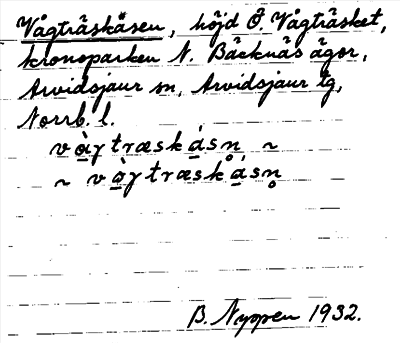 Vågträskåsen, höjd Ö. Vågträsket,
kronoparken N. Bäcknäs ägor,
Arvidsjaur sn, Arvidsjaur tg,
Norrb. l.
vàɣtræskásn̥ ~
~ vɔ̀ɣtræskásn̥
B. Nyppen 1932.